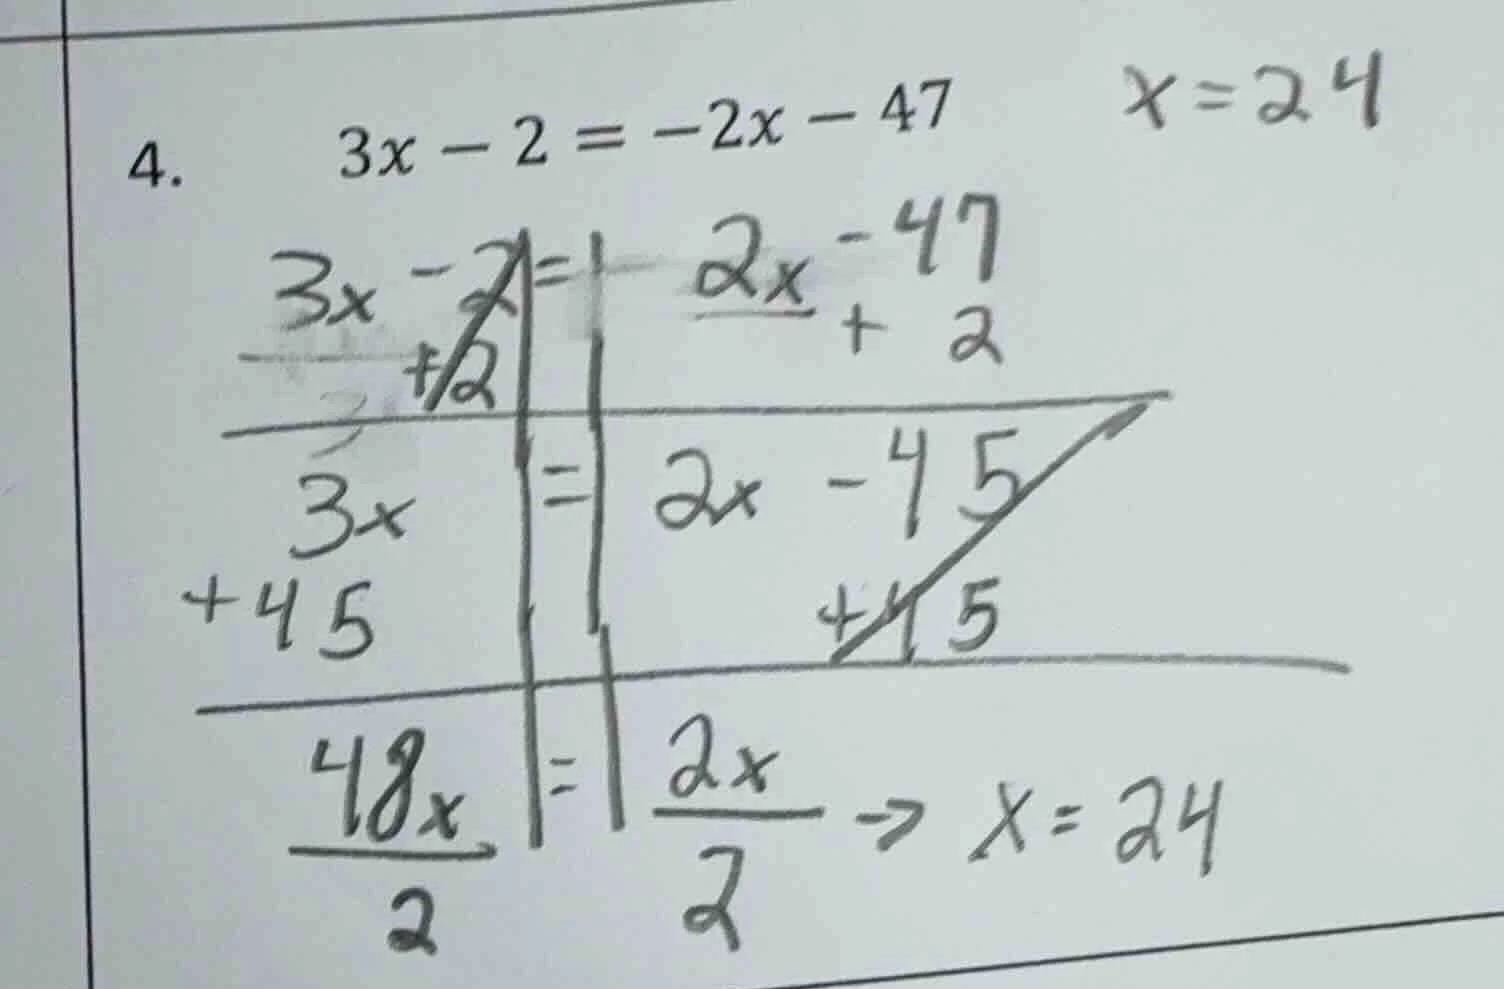 4. 3x − 2 = −2x − 47 x = 24
3x - 2 = - 2x - 47
+2 + 2
3x = 2x - 45
+45 +45
48x = 2x → x = 24
2 2